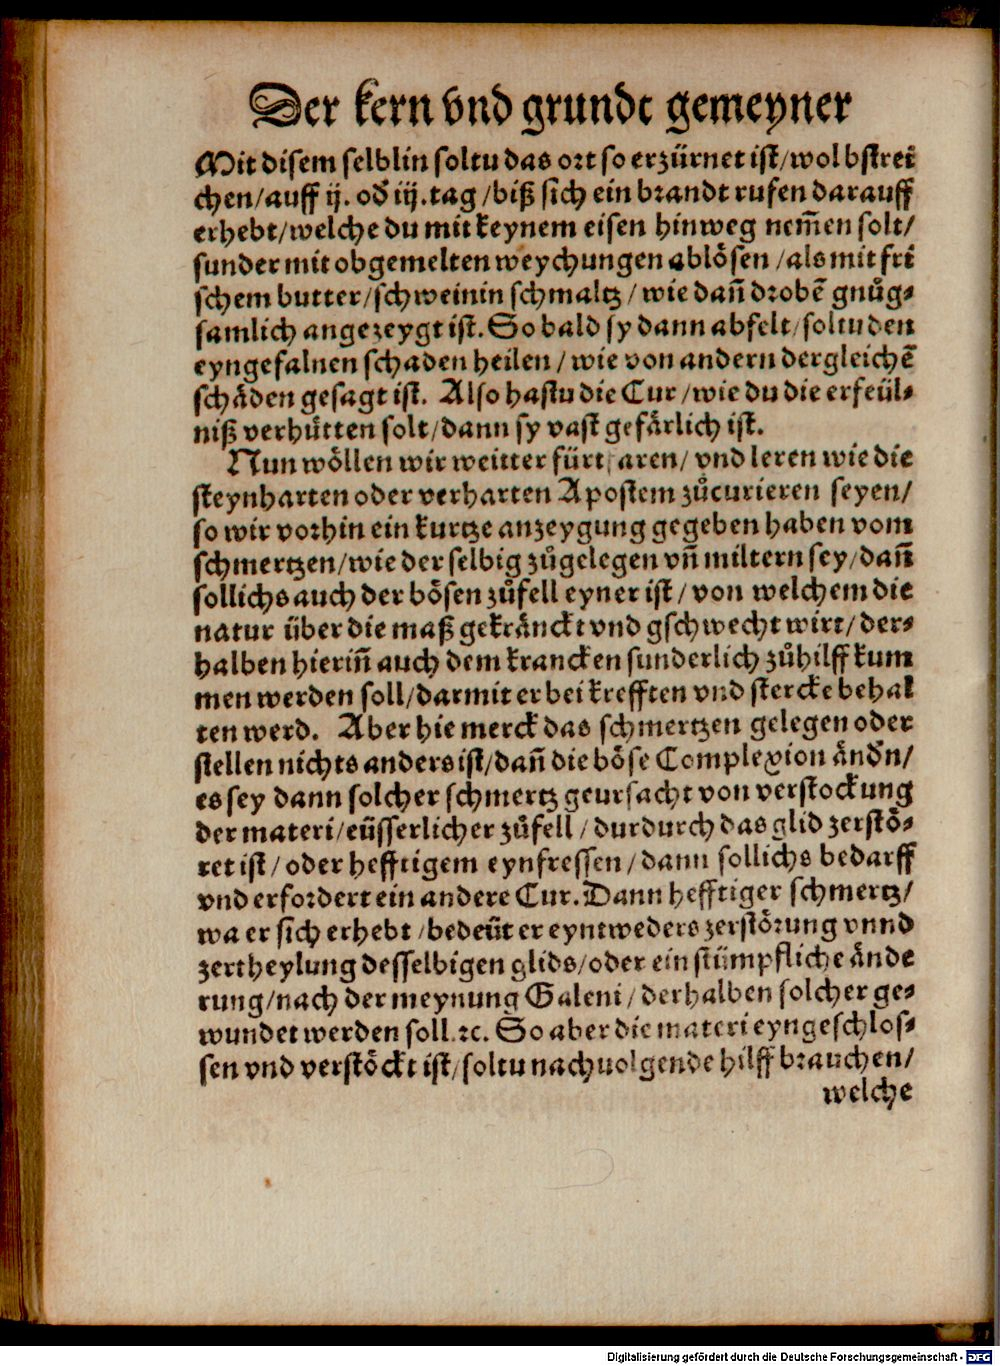 Der kern vnd grundt gemeyner
Mit disem selblin soltu das ort so erzürnet ist/wol bstrei
chen/auff ij. oď iij.tag/biß sich ein brandt rufen darauff
erhebt/welche du mit keynem eisen hinweg nem̃en solt/
sunder mit obgemelten weychungen ablösen/als mit fri
schem butter/schweinin schmaltz/wie dañ drobẽ gnůg-
samlich angezeygt ist. So bald sy dann abfelt/soltu den
eyngefalnen schaden heilen/wie von andern dergleichẽ
schäden gesagt ist. Also hastu die Cur/wie du die erfeül-
niß verhütten solt/dann sy vast gefärlich ist.
Nun wöllen wir weitter fürt aren/vnd leren wie die
steynharten oder verharten Apostem zůcurieren seyen/
so wir vorhin ein kurtze anzeygung gegeben haben vom
schmertzen/wie der selbig zůgelegen vñ miltern sey/dañ
sollichs auch der bösen zůfell eyner ist/von welchem die
natur über die maß gekränckt vnd gschwecht wirt/der-
halben hieriñ auch dem krancken sunderlich zůhilff kum
men werden soll/darmit er bei krefften vnd stercke behal
ten werd. Aber hie merck das schmertzen gelegen oder
stellen nichts anders ist/dañ die böse Complexion änďn/
es sey dann solcher schmertz geursacht von verstockung
der materi/eüsserlicher zůfell/durdurch das glid zerstö-
ret ist/oder hefftigem eynfressen/dann sollichs bedarff
vnd erfordert ein andere Cur. Dann hefftiger schmertz/
wa er sich erhebt/bedeüt er eyntweders zerstörung vnnd
zertheylung desselbigen glids/oder ein stümpfliche ände
rung/nach der meynung Galeni/derhalben solcher ge-
wundet werden soll.ꝛc. So aber die materi eyngeschlos-
sen vnd verstöckt ist/soltu nachuolgende hilff brauchen/
welche
Digitalisierung gefördert durch die Deutsche Forschungsgemeinschaft - DFG